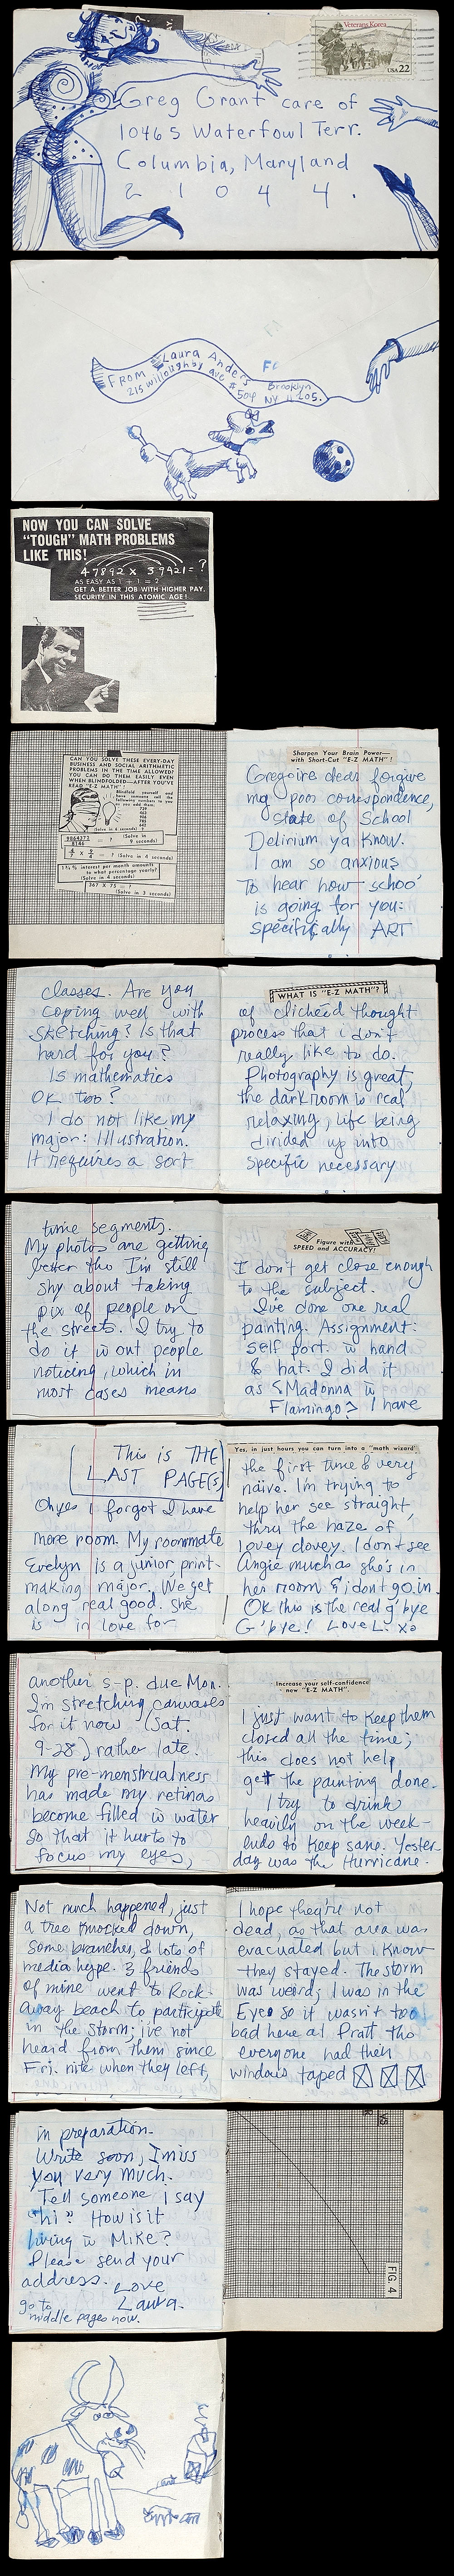 Veterans Korea
USA 22
Greg Grant care of
10465 Waterfowl Terr.
Columbia, Maryland
2 1 0 4 4 .
From Laura Anders
215 Willoughby Ave # 504
Brooklyn
NY 11205.
NOW YOU CAN SOLVE
"TOUGH" MATH PROBLEMS
LIKE THIS!
47892 x 39421 = ?
AS EASY AS 1 + 1 = 2
GET A BETTER JOB WITH HIGHER PAY,
SECURITY IN THIS ATOMIC AGE!
CAN YOU SOLVE THESE EVERY-DAY
BUSINESS AND SOCIAL ARITHMETIC
PROBLEMS IN THE TIME ALLOWED?
YOU CAN DO THEM EASILY EVEN
WHEN BLINDFOLDED—AFTER YOU'VE
READ "E-Z MATH"!
(Solve in 4 seconds)
1½% interest per month amounts
to what percentage yearly?
(Solve in 4 seconds)
367 X 75 = ?
(Solve in 3 seconds)
Sharpen Your Brain Power—
with Short-Cut "E-Z MATH"!
Gregoire dear forgive
my poor correspondence,
state of School
Delirium ya know.
I am so anxious
To hear how schoo'
is going for you:
specifically ART
classes. Are you
coping well with
sketching? Is that
hard for you?
Is mathematics
OK too?
I do not like my
major: Illustration.
It requires a sort
WHAT IS "E-Z MATH"?
of clichéd thought
process that i don't
really like to do.
Photography is great,
the darkroom is real
relaxing, life being
divided up into
specific necessary
time segments.
My photos are getting
better tho I'm still
shy about taking
pix of people on
the streets. I try to
do it w out people
noticing, which in
most cases means
Figure with
SPEED and ACCURACY!
I don't get close enough
to the subject.
I've done one real
painting. Assignment:
self port. w hand
& hat. I did it
as "Madonna w
Flamingo" I have
This is THE
LAST PAGE(S)
Oh yes I forgot I have
more room. My roommate
Evelyn is a junior, print-
making major. We get
along real good. She
is in love for
Yes, in just hours you can turn into a "math wizard"
the first time & very
naive. I'm trying to
help her see straight,
thru the haze of
lovey dovey. I don't see
Angie much as she's in
her room & i don't go in.
OK this is the real g'bye
G'bye! Love L. xo
another s-p. due Mon.
I'm stretching canvases
for it now (Sat.
9-28) rather late.
My pre-menstrualness
has made my retinas
become filled w water
so that it hurts to
focus my eyes,
Increase your self-confidence
new "E-Z MATH".
I just want to keep them
closed all the time;
this does not help
get the painting done.
I try to drink
heavily on the week-
ends to keep sane. Yester-
day was the Hurricane.
Not much happened, just
a tree knocked down,
some branches, & lots of
media hype. 3 friends
of mine went to Rock-
away beach to participate
in the storm; i've not
heard from them since
Fri. nite when they left,
I hope they're not
dead, as that area was
evacuated but i know
they stayed. The storm
was weird; I was in the
Eye so it wasn't too
bad here at Pratt tho
everyone had their
windows taped
in preparation.
Write soon, I miss
you very much.
Tell someone i say
"hi" How is it
living w Mike?
Please send your
address. Love
Laura.
go to
middle pages now.
FIG 4